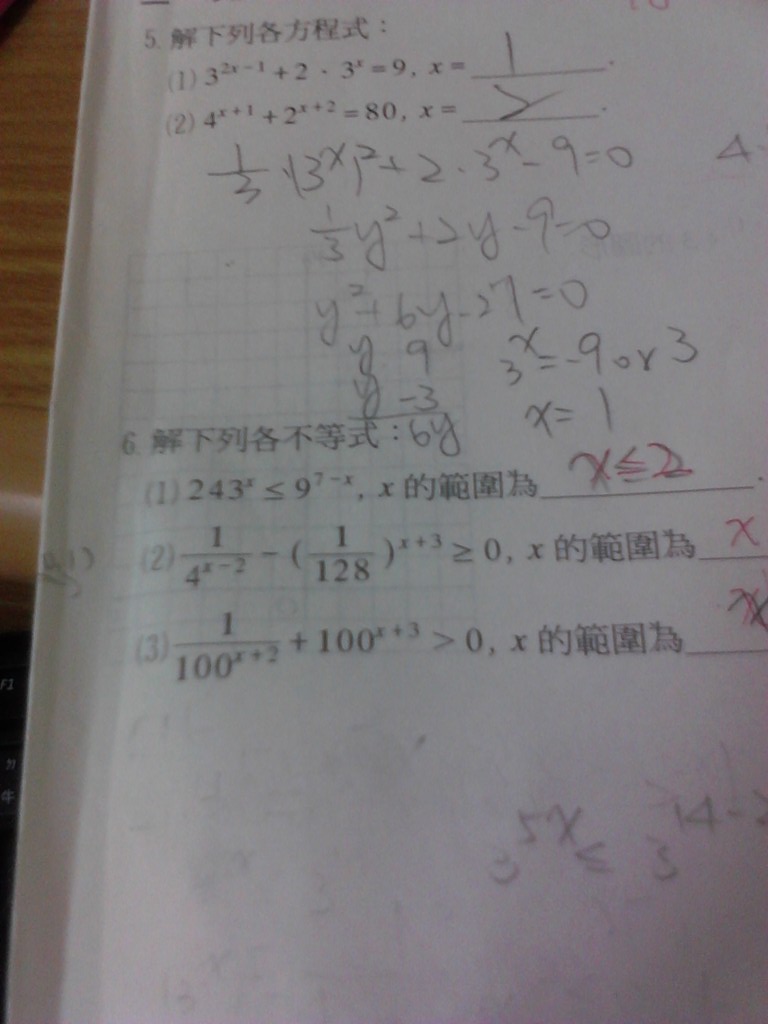 5. 解下列各方程式：
(1) 3^{2x-1} + 2 · 3^x = 9, x = 1.
(2) 4^{x+1} + 2^{x+2} = 80, x = 2.
1/3 · (3^x)^2 + 2 · 3^x - 9 = 0
4
1/3 y^2 + 2y - 9 = 0
y^2 + 6y - 27 = 0
y 9
3^x = -9 or 3
y -3
x = 1
6y
6. 解下列各不等式：
(1) 243^x ≤ 9^{7-x}, x 的範圍為 x ≤ 2.
(2) 1/4^{x-2} - (1/128)^{x+3} ≥ 0, x 的範圍為 x
(3) 1/100^{x+2} + 100^{x+3} > 0, x 的範圍為 x
3^{5x} ≤ 3^{14-2
F1